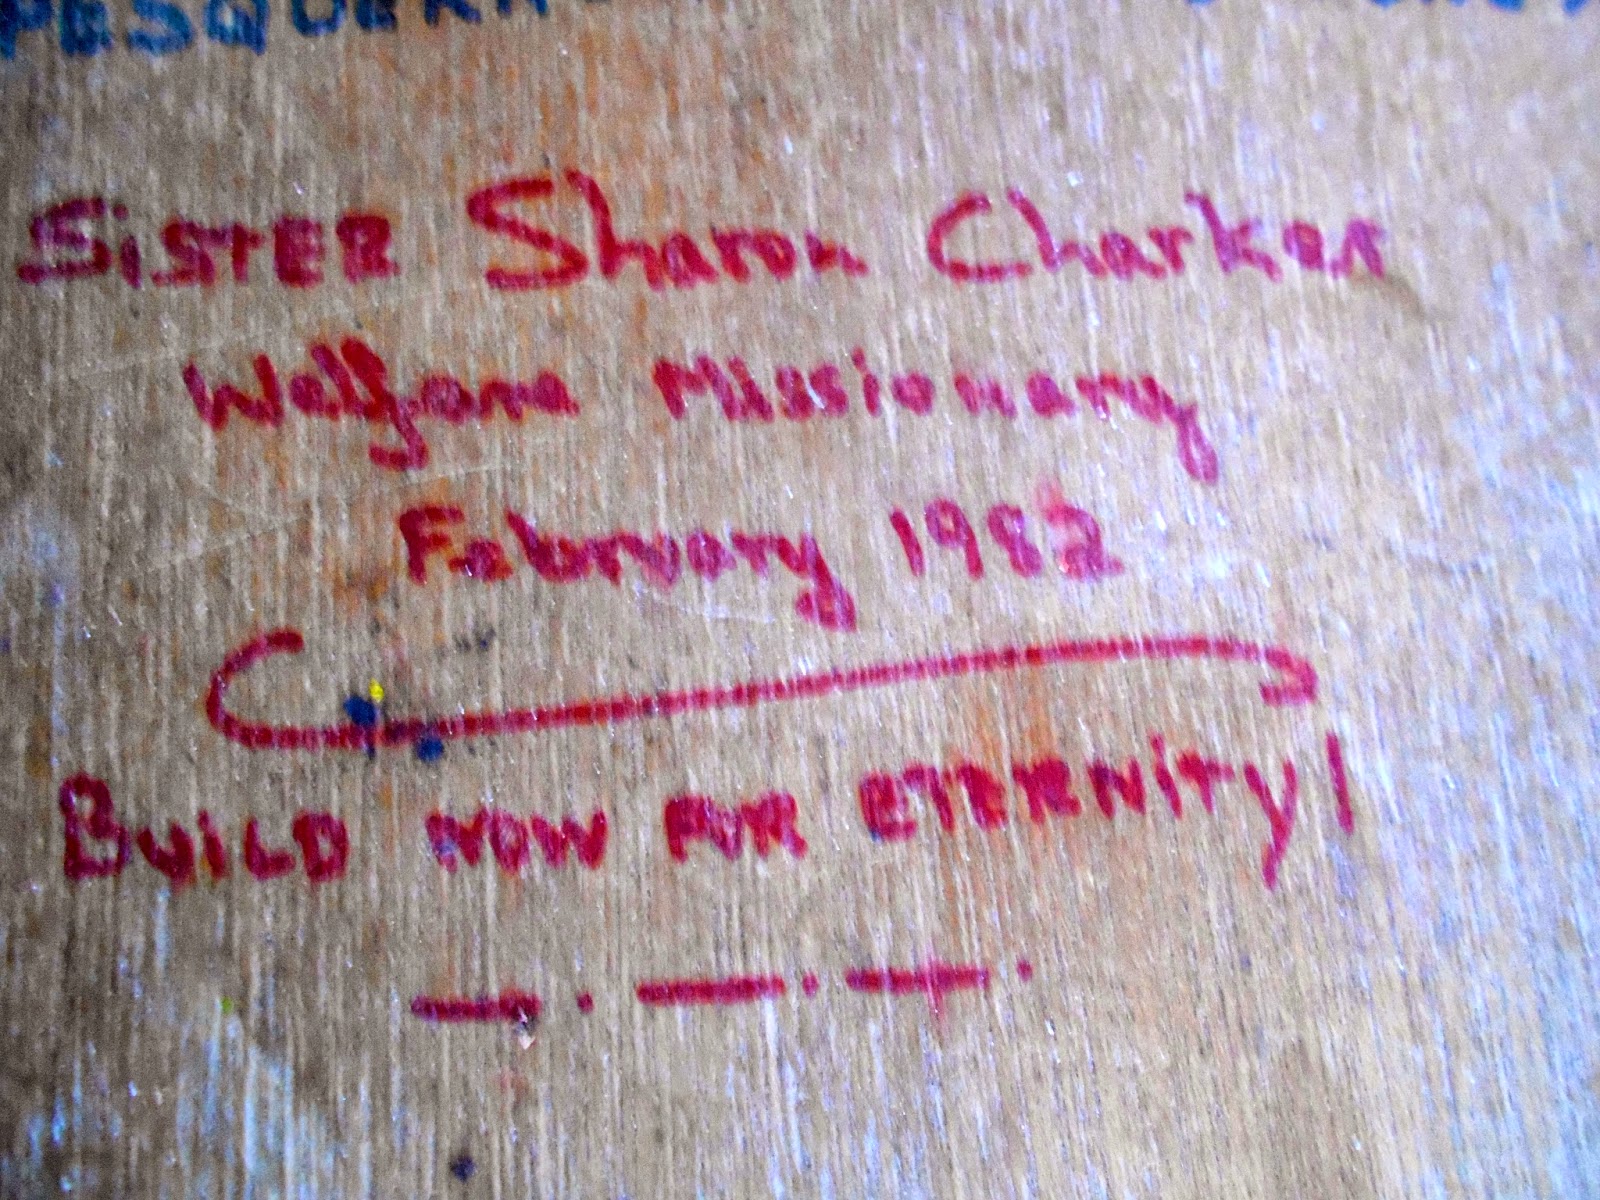 SiSTER Sharon Charker
Welfare Missionary
February 1982
BuiLD NOW FOR ETERNiTy!